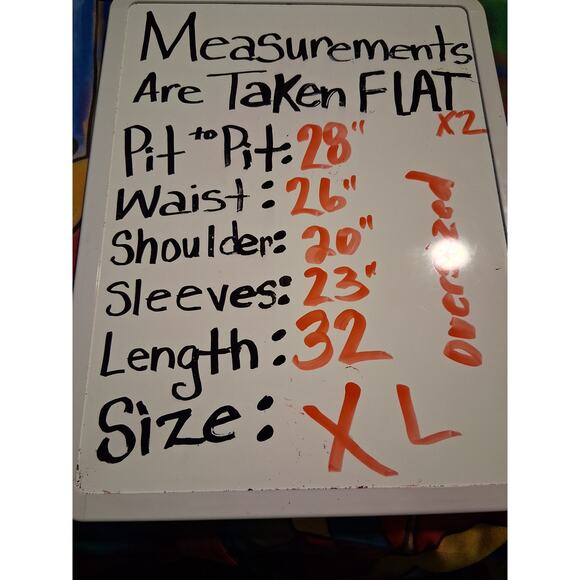 Measurements
Are Taken FLAT
x2
Pit to Pit: 28"
Waist: 26"
Shoulder: 20"
Sleeves: 23"
Length: 32
Size: XL
Oversized